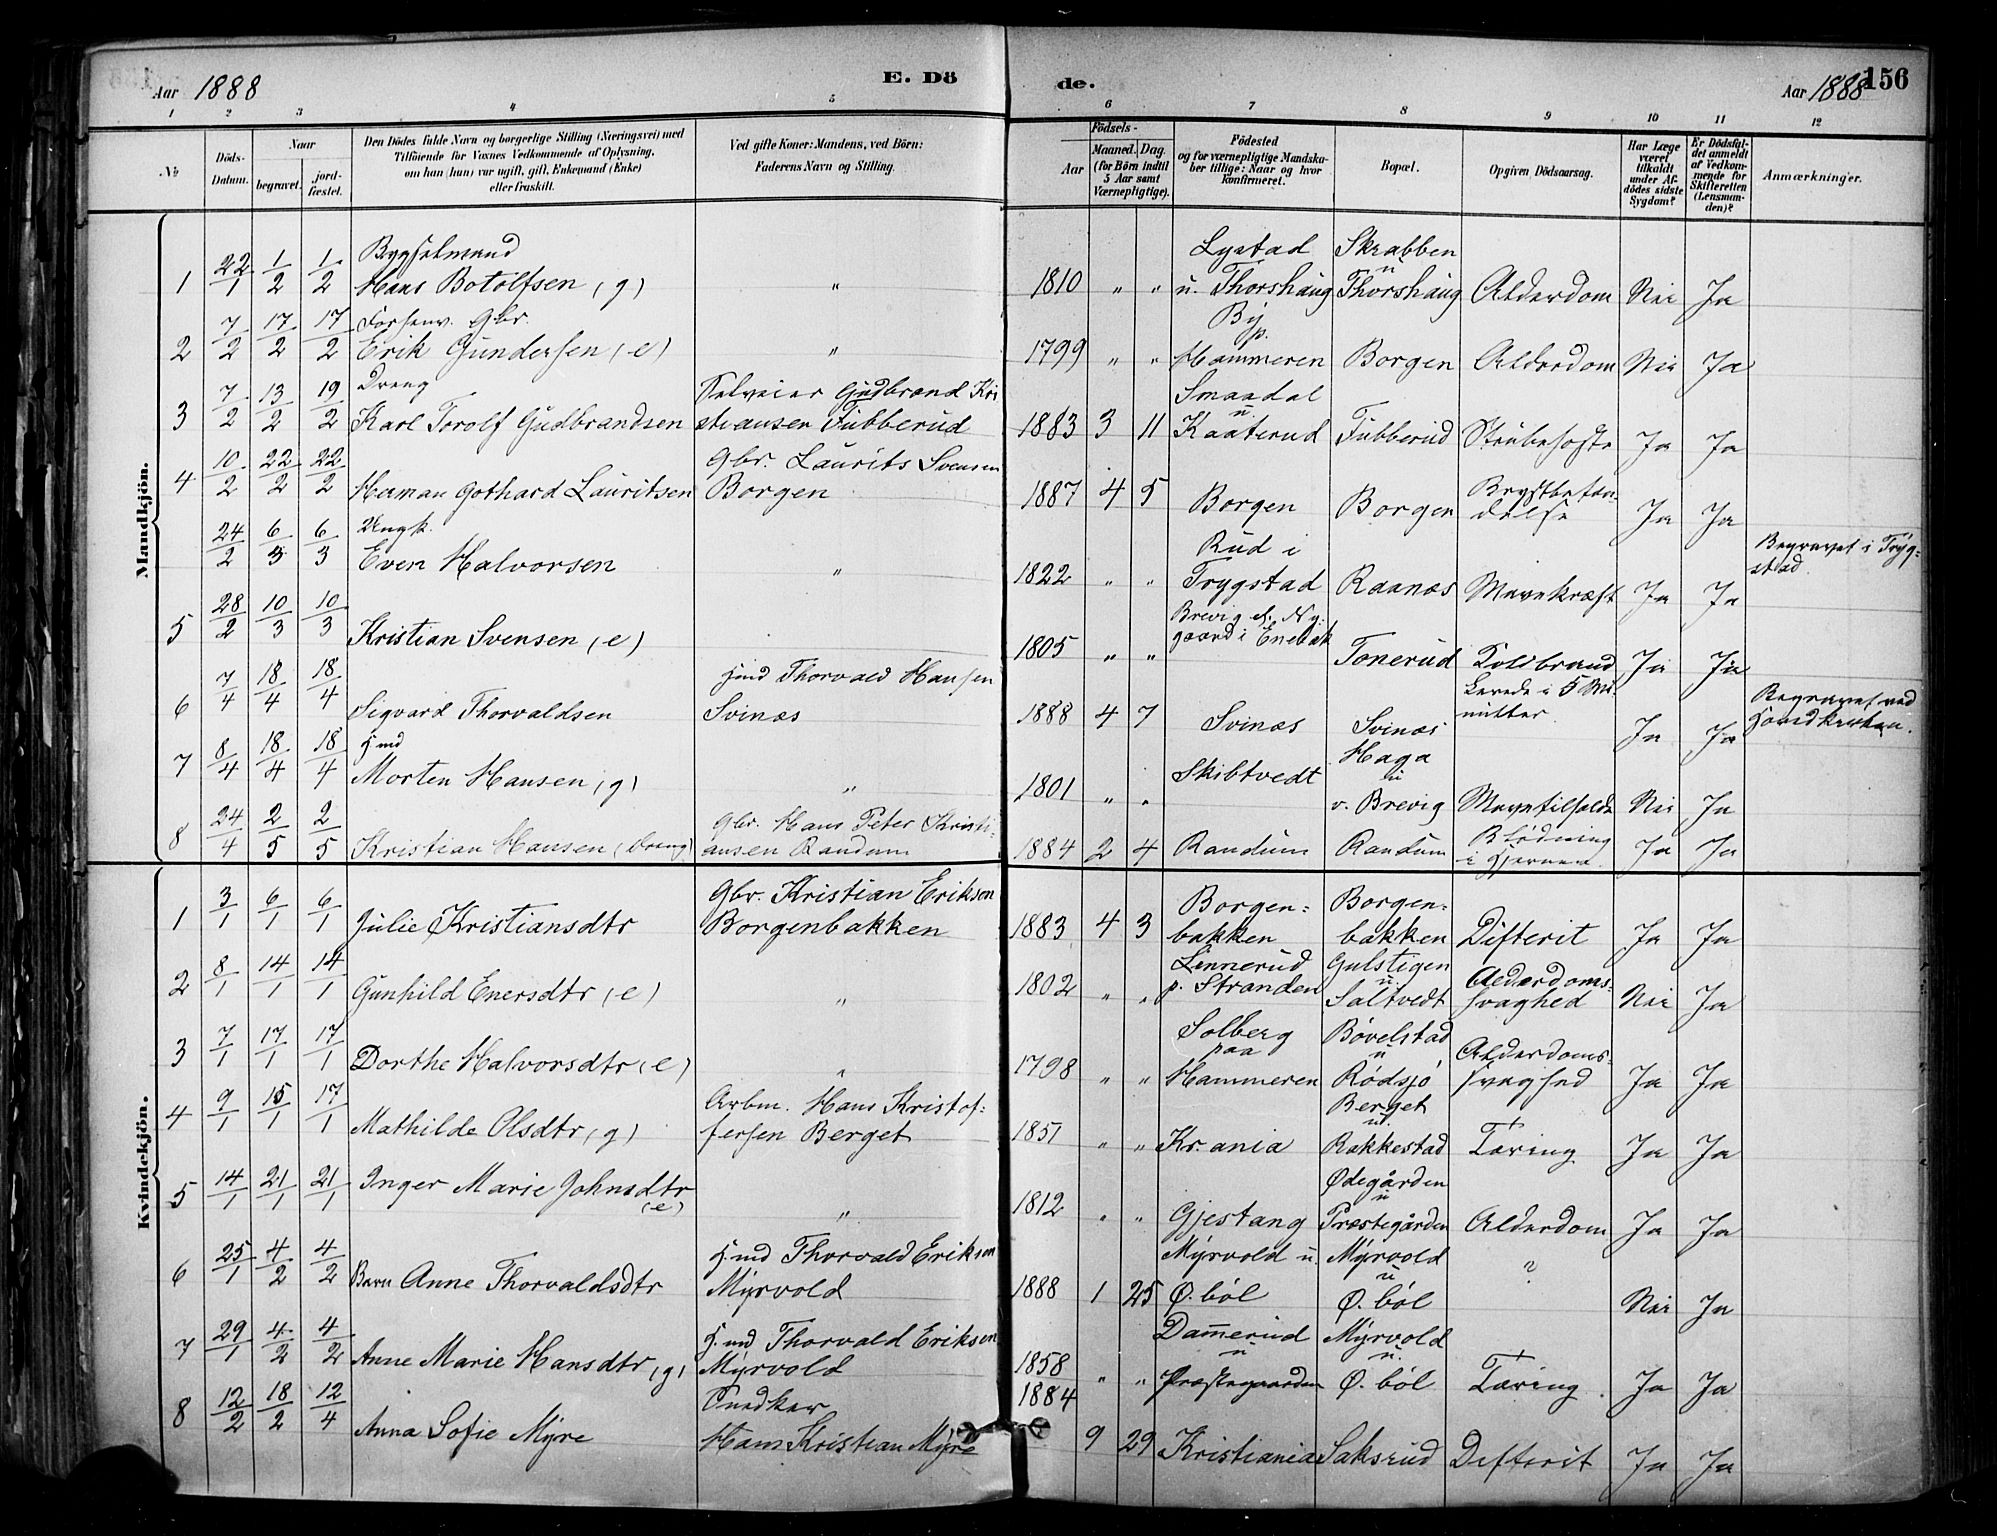 Aar 1888
E. Dö
de.
Aar 1888
156
1 2 3 4 5 6 7 8 9 10 11 12
No
Döds-Datum.
Naar
begravet.
jordfæstet.
Den Dödes fulde Navn og borgerlige Stilling (Næringsvei) med
Tilföiende for Voxnes Vedkommende af Oplysning,
om han (hun) var ugift, gift, Enkemand (Enke)
eller fraskilt.
Ved gifte Koner: Mandens, ved Börn:
Faderens Navn og Stilling.
Födsels-
Aar
Maaned. Dag.
(for Börn indtil
5 Aar samt
Værnepligtige).
Födested
og for værnepligtige Mandska-
ber tillige: Naar og hvor
konfirmeret.
Bopæl.
Opgiven Dödsaarsag.
Har Læge
været
tilkaldt
under Af-
dödes sidste
Sygdom?
Er Dödsfal-
det anmeldt
af Vedkom-
mende for
Skifteretten
(Lensman-
den)?
Anmærkninger.
Mandkjön.
1 22/1 1/2 1/2 Bygselmand
Hans Botolfsen (g) " 1810 " " Lystad
u. Thorshaug Skrabben
u
Thorshaug Alderdom Nei Ja
2 7/2 17/2 17/2 Forhenv. Gbr.
Erik Gundersen (e) " 1799 " " By
p.
Hammeren Borgen Alderdom Nei Ja
3 7/2 13/2 19/2 Dreng
Karl Torolf Gudbrandsen Selveier Gudbrand Kri
stiansen Tubberud 1883 3 11 Smaadal
u.
Kaaterud Tubberud Strubehoste Ja Ja
4 10/2 22/2 22/2 Herman Gothard Lauritsen Gbr. Laurits Svensen
Borgen 1887 4 5 Borgen Borgen Brystbetæn-
delse Ja Ja
24/2 6/3 6/3 Ungk.
Even Halvorsen " 1822 " " Rud i
Trygstad Raanæs Mavekræft Ja Ja Begravet i Tryg-
stad
5 28/2 10/3 10/3 Kristian Svensen (e) 1805 " " Brevig el. Ny-
gaard i Enebak Tonerud Koldbrand Ja Ja
6 7/4 18/4 18/4 Sigvard Thorvaldsen Hmd Thorvald Hansen
Svinæs 1888 4 7 Svinæs Svinæs Levede i 5 Mi-
nutter Ja Ja Begravet ved
Hovedkirken.
7 8/4 18/4 18/4 Hmd
Morten Hansen (g) " 1801 " " Skibtvedt Haga
u
v. Brevig Mavetilfælde Nei Ja
8 24/4 2/5 2/5 Kristian Hansen (dreng) Gbr. Hans Peter Kristi-
ansen Randum 1884 2 4 Randum Randum Blödning
i Hjernen Ja Ja
Kvindekjön.
1 3/1 6/1 6/1 Julie Kristiansdtr Gbr. Kristian Eriksen
Borgenbakken 1883 4 3 Borgen-
bakken Borgen-
bakken Difterit Ja Ja
2 8/1 14/1 14/1 Gunhild Enersdtr (e) " 1802 " " Linnerud
p. Stranden Gulstigen
u.
Saltvedt Alderdoms-
svaghed Nei Ja
3 7/1 17/1 17/1 Dorthe Halvorsdtr (e) " 1798 " " Solberg
paa
Hammeren Bövelstad
u
Rödsjö Alderdoms-
svaghed Ja Ja
4 9/1 15/1 17/1 Mathilde Olsdtr (g) Arbm. Hans Kristof-
fersen Berget 1851 " " Kr.ania Berget
u.
Rakkestad Tæring Ja Ja
5 14/1 21/1 21/1 Inger Marie Johnsdtr
(e) " 1812 " " Gjestang Ödegården
u
Præstegården Alderdom Ja Ja
6 25/1 4/2 4/2 Barn Anne Thorvaldsdtr Hmd Thorvald Eriksen
Myrvold 1888 1 25 Myrvold u.
Ö. böl Myrvold
u
Ö. böl ? Nei Ja
7 29/1 4/2 4/2 Anne Marie Hansdtr (g) H.md Thorvald Eriksen
Myrvold 1858 " " Dammerud
u
Præstegaarden Myrvold
u.
Ö. böl Tæring. Ja Ja
8 12/2 18/2 12/4 Anna Sofie Myre Snedker
Hans Kristian Myre 1884 9 29 Kristiania Saksrud Difterit Ja Ja